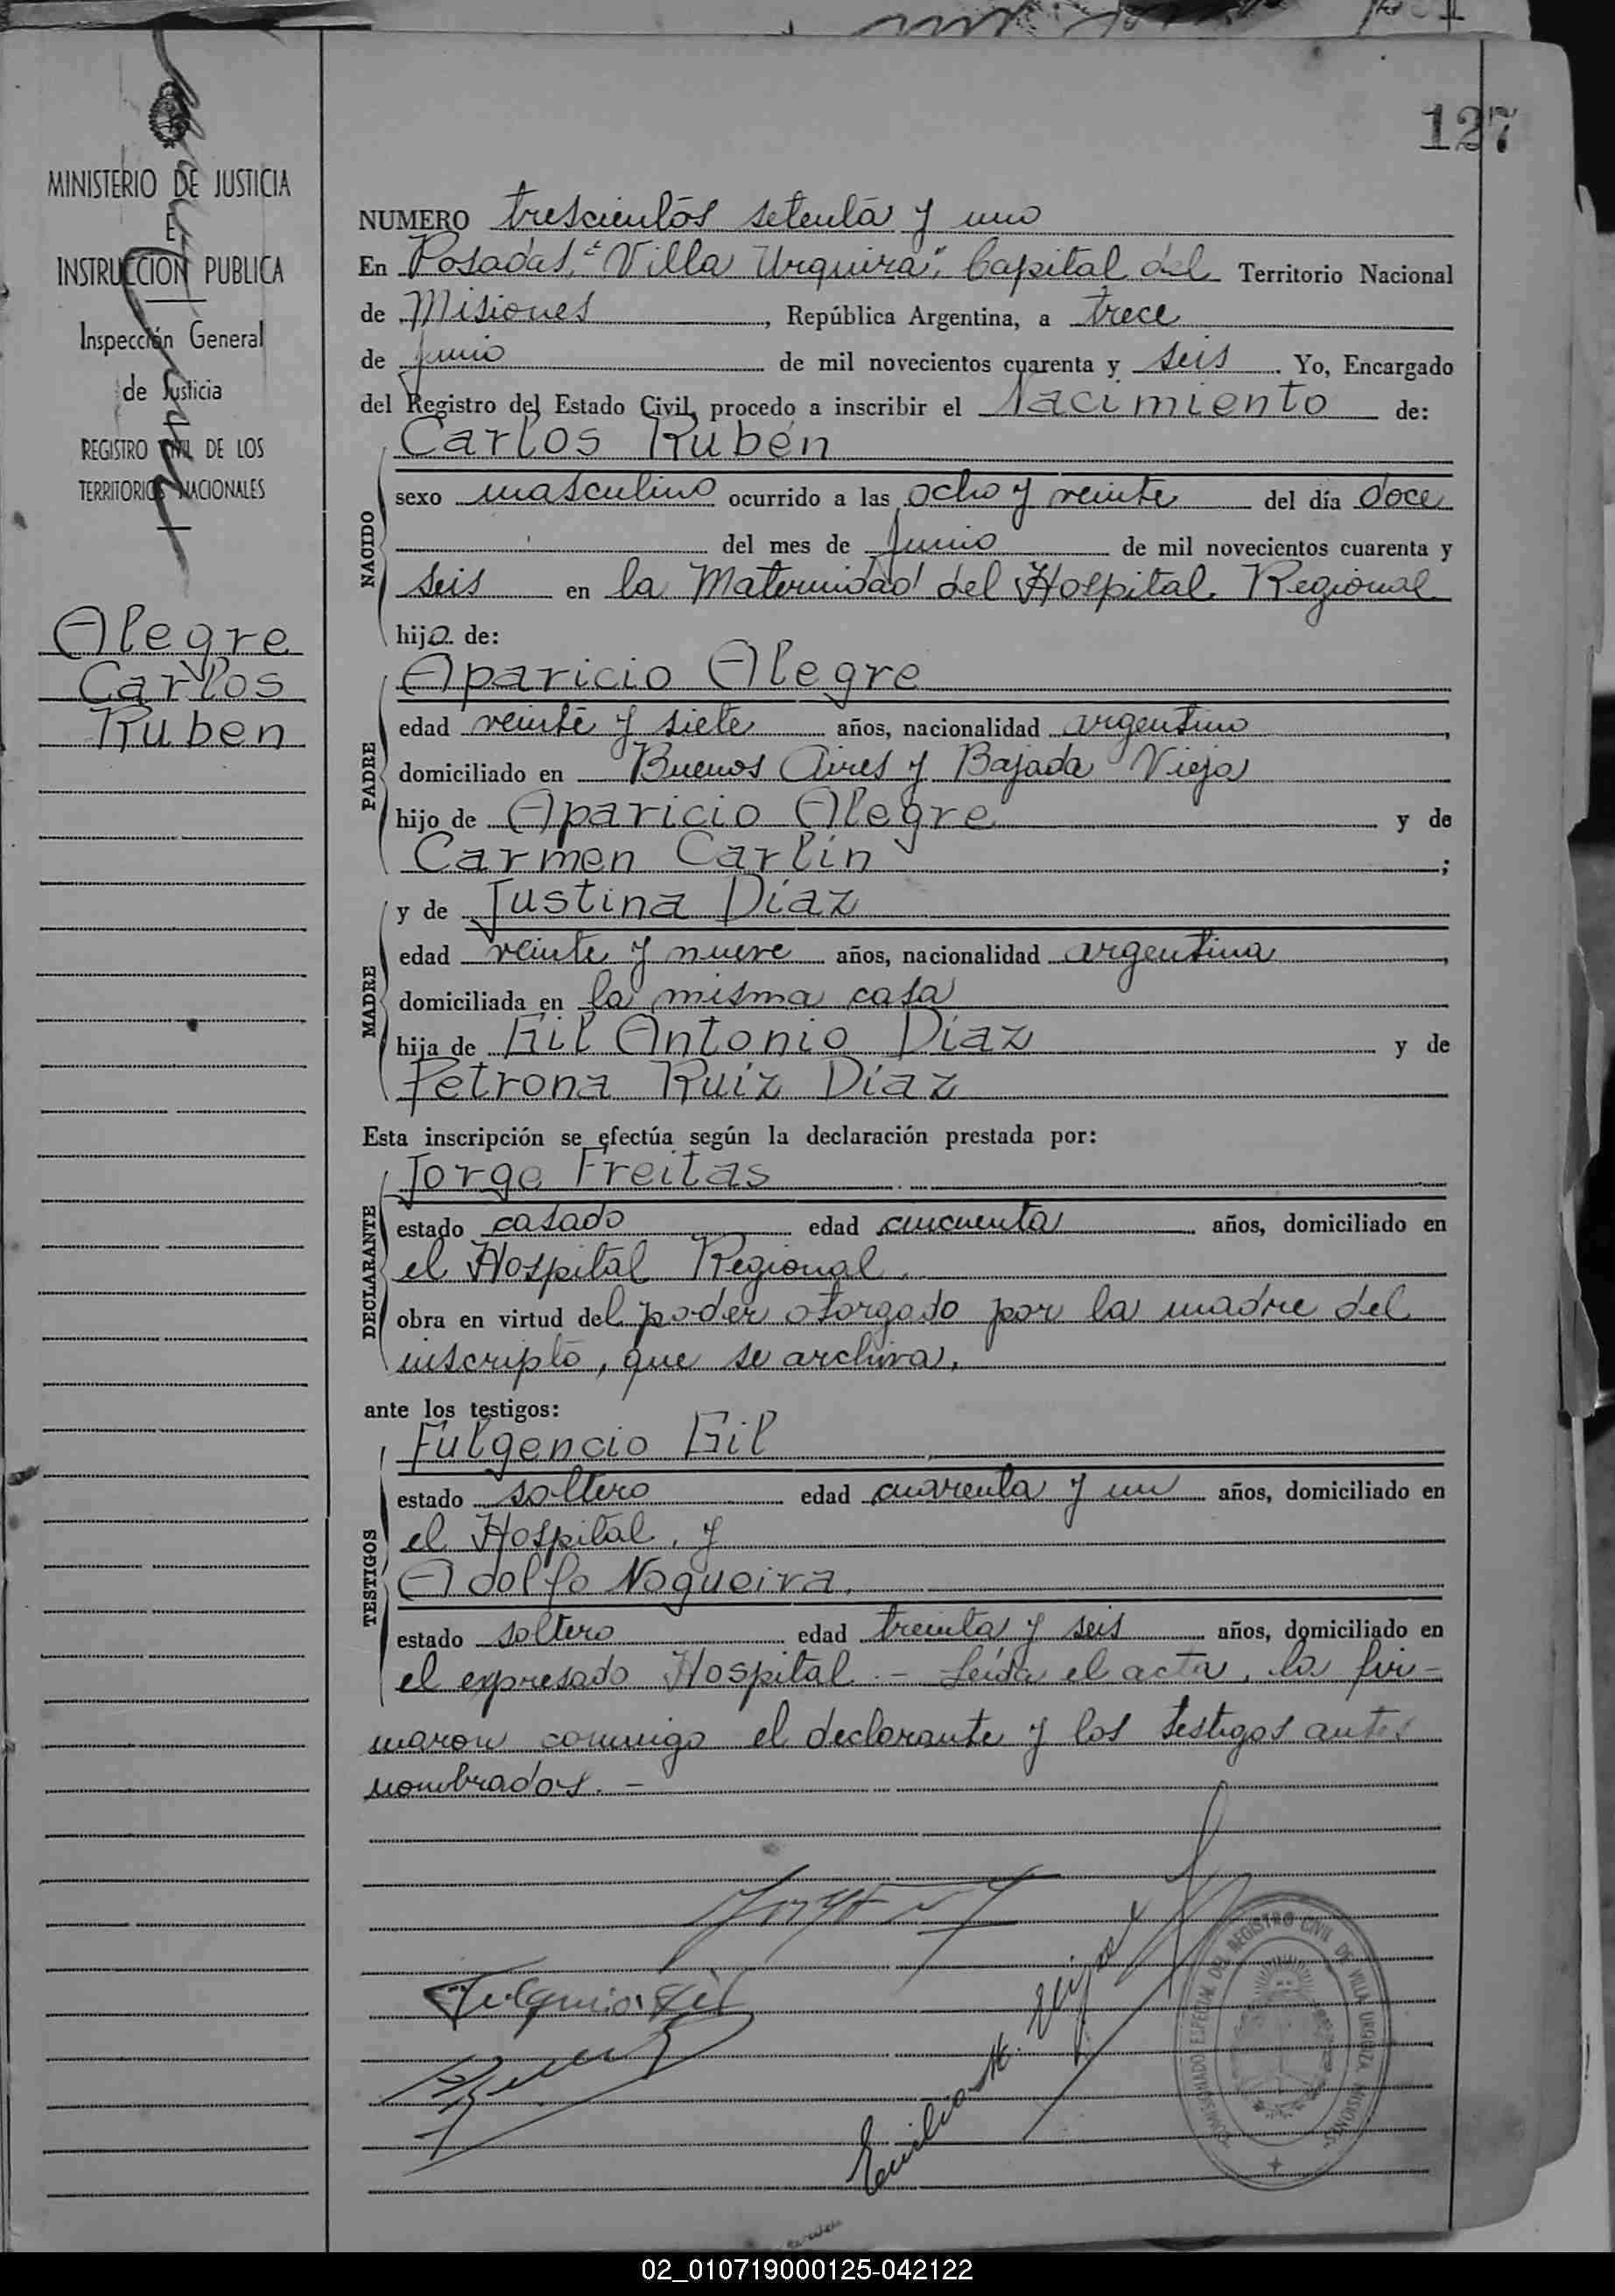 127
MINISTERIO DE JUSTICIA
E
INSTRUCCION PUBLICA
Inspección General
de Justicia
REGISTRO CIVIL DE LOS
TERRITORIOS NACIONALES
Alegre
Carlos
Ruben
NUMERO trescientos setenta y uno
En Posadas, "Villa Urquiza", Capital del Territorio Nacional
de Misiones, República Argentina, a trece
de junio de mil novecientos cuarenta y seis. Yo, Encargado
del Registro del Estado Civil, procedo a inscribir el Nacimiento de:
NACIDO
Carlos Rubén
sexo masculino ocurrido a las ocho y veinte del día doce
del mes de Junio de mil novecientos cuarenta y
seis en la Maternidad del Hospital Regional
hijo de:
PADRE
Aparicio Alegre
edad veinte y siete años, nacionalidad argentino,
domiciliado en Buenos Aires y Bajada Vieja
hijo de Aparicio Alegre y de
Carmen Carlín;
MADRE
y de Justina Díaz
edad veinte y nueve años, nacionalidad argentina,
domiciliada en la misma casa
hija de Gil Antonio Díaz y de
Petrona Ruiz Díaz
Esta inscripción se efectúa según la declaración prestada por:
DECLARANTE
Jorge Freitas
estado casado edad cincuenta años, domiciliado en
el Hospital Regional.
obra en virtud del poder otorgado por la madre del
inscripto, que se archiva.
ante los testigos:
TESTIGOS
Fulgencio Gil
estado soltero edad cuarenta y un años, domiciliado en
el Hospital, y
Adolfo Nogueira.
estado soltero edad treinta y seis años, domiciliado en
el expresado Hospital.- Leída el acta, la fir-
maron conmigo el declarante y los testigos antes
nombrados.-
COMISIONADO ESPECIAL DEL REGISTRO CIVIL DE VILLA URQUIZA MISIONES
02_010719000125-042122